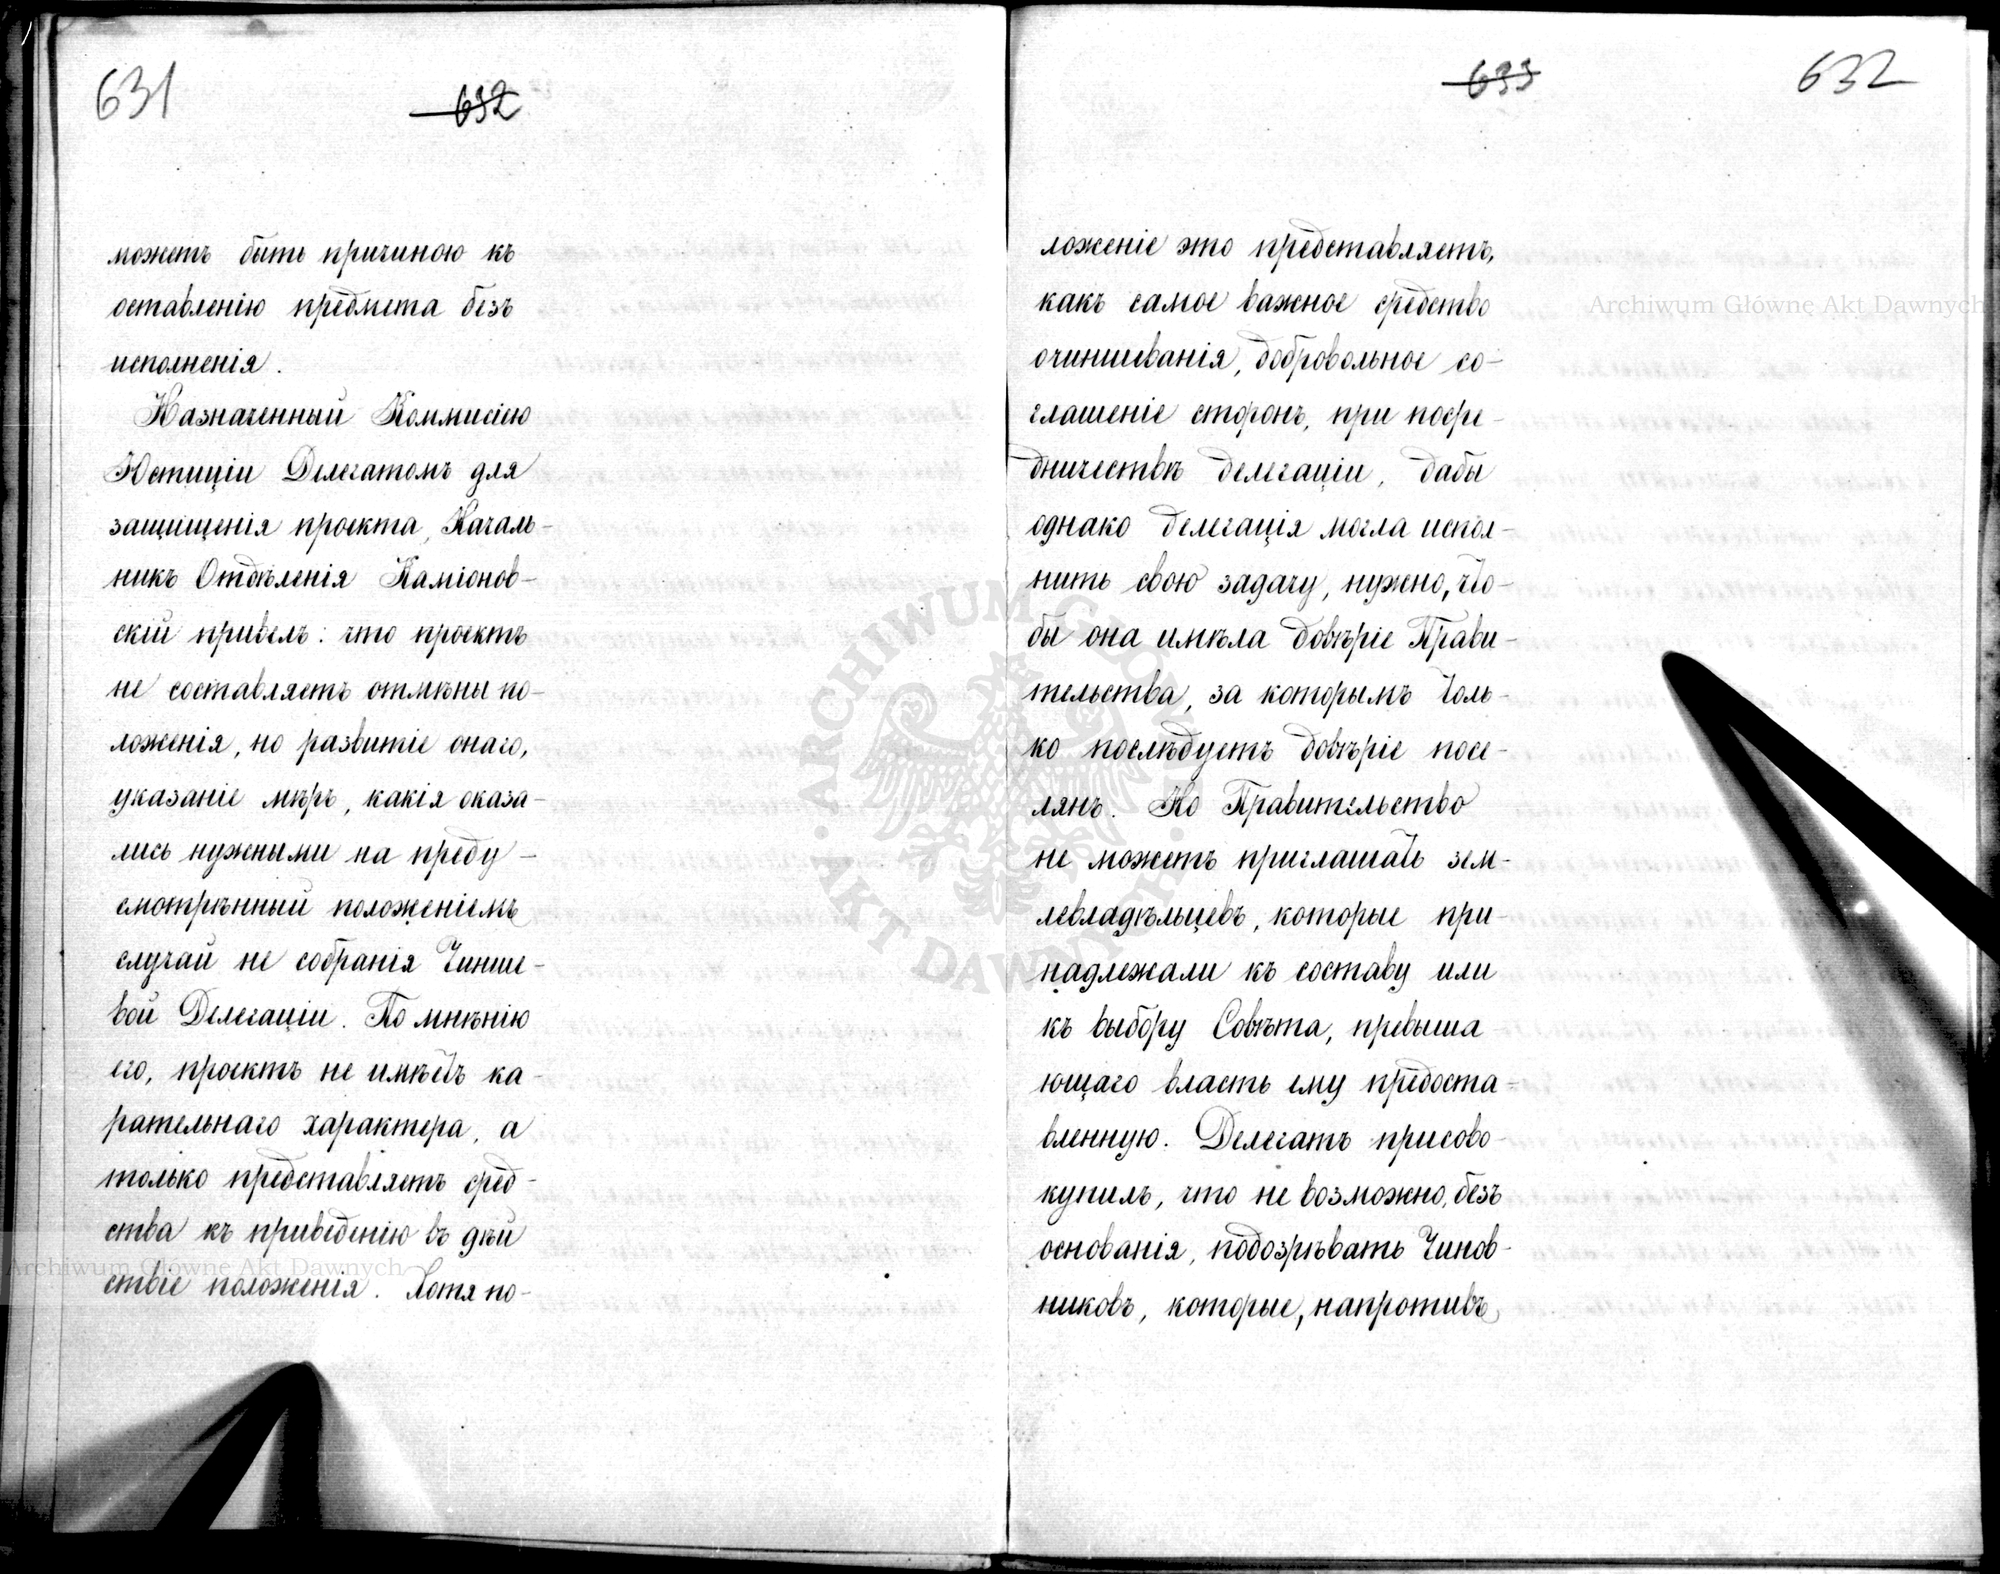 631
632
можетъ быть причиною къ
оставленію предмета безъ
исполненія.
Назначенный Коммисіею
Юстиціи Делегатомъ для
защищенія проекта, Началь-
никъ Отдѣленія Каміонов-
скій привелъ: что проектъ
не составляетъ отмѣны по-
ложенія, но развитіе онаго,
указаніе мѣръ, какія оказа-
лись нужными на преду-
смотрѣнный положеніемъ
случай не собранія Чинше-
вой Делегаціи. По мнѣнію
его, проектъ не имѣетъ ка-
рательнаго характера, а
только представляетъ сред-
ства къ приведенію въ дѣй
ствіе положенія. Хотя по-
633
632
ложеніе это представляетъ,
какъ самое важное средство
очиншеванія, добровольное со-
глашеніе сторонъ, при посре-
дничествѣ делегаціи, дабы
однако делегація могла испол-
нить свою задачу, нужно, что-
бы она имѣла довѣріе Прави-
тельства, за которымъ толь-
ко послѣдуетъ довѣріе посе-
лянъ. Но Правительство
не можетъ приглашать зем-
левладѣльцевъ, которые при-
надлежали къ составу или
къ выбору Совѣта, превыша
ющаго власть ему предоста-
вленную. Делегатъ присово-
купилъ, что не возможно, безъ
основанія, подозрѣвать Чинов-
никовъ, которые, напротивъ,
Archiwum Główne Akt Dawnych
Archiwum Główne Akt Dawnych
ARCHIWUM GŁÓWNE AKT DAWNYCH